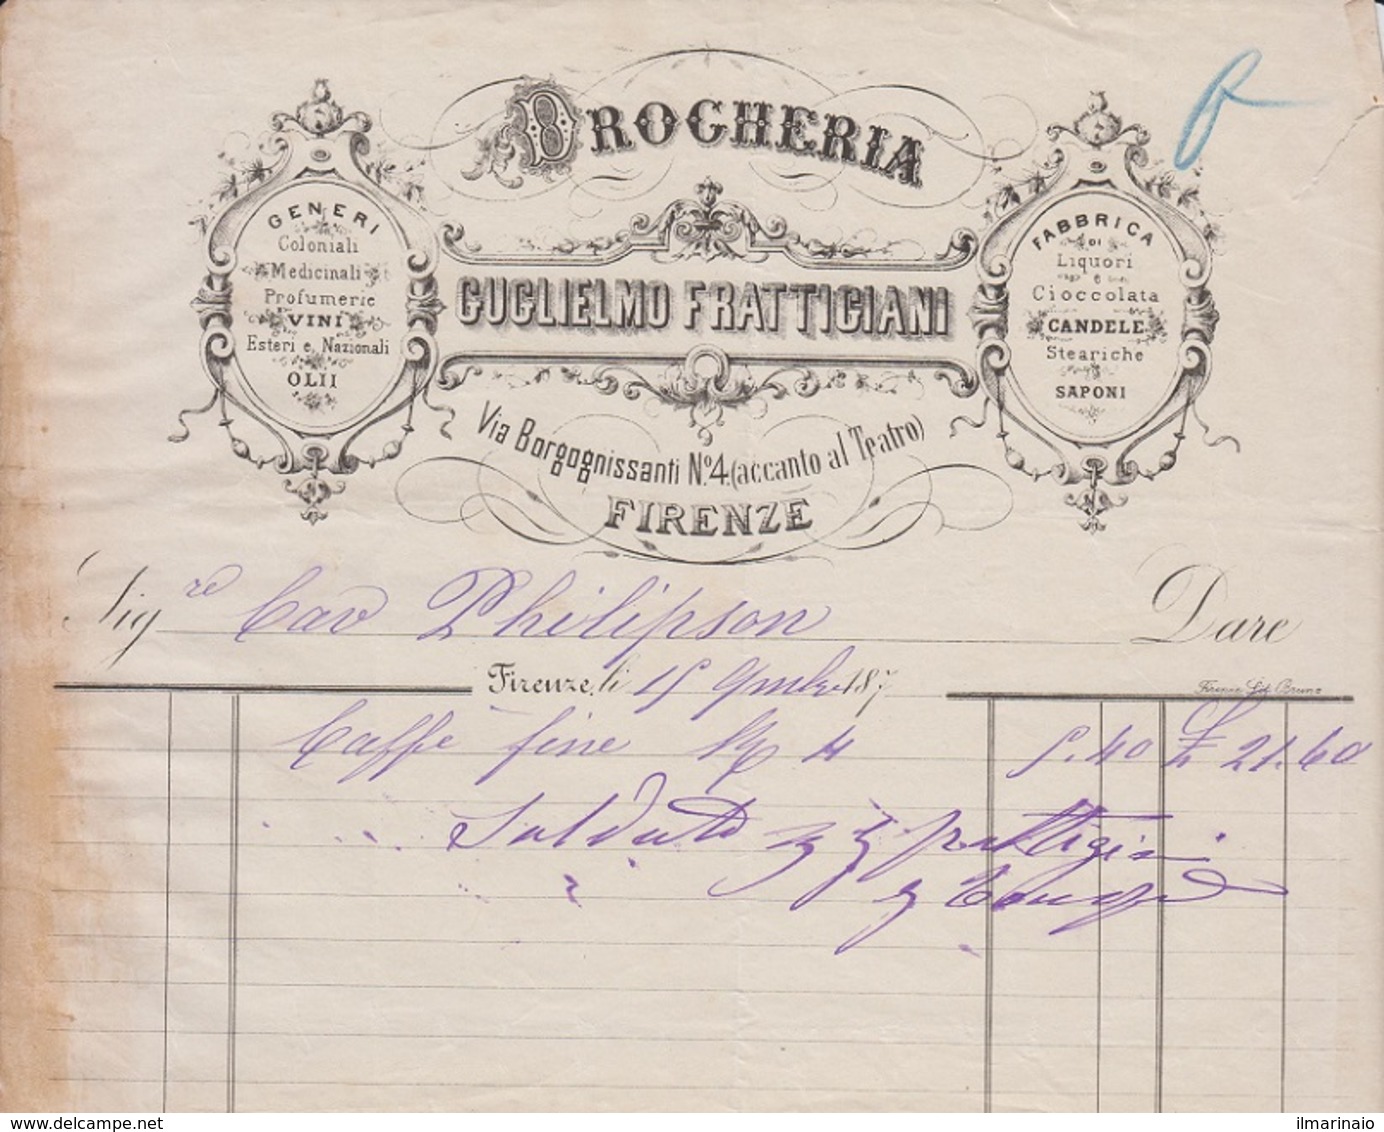 DROGHERIA
GENERI
Coloniali
Medicinali
Profumerie
VINI
Esteri e Nazionali
OLII
GUGLIELMO FRATTIGIANI
FABBRICA
DI
Liquori
e
Cioccolata
CANDELE
Steariche
SAPONI
Via Borgognissanti No. 4 (accanto al Teatro)
FIRENZE
Sigre Cav Philipson Dare
Firenze, li 15 9mbre 187
Firenze Lit. Bruno
Caffe fine K 4 5.40 £ 21.60
Saldato Frattigiani
www.delcampe.net
ilmarinaio